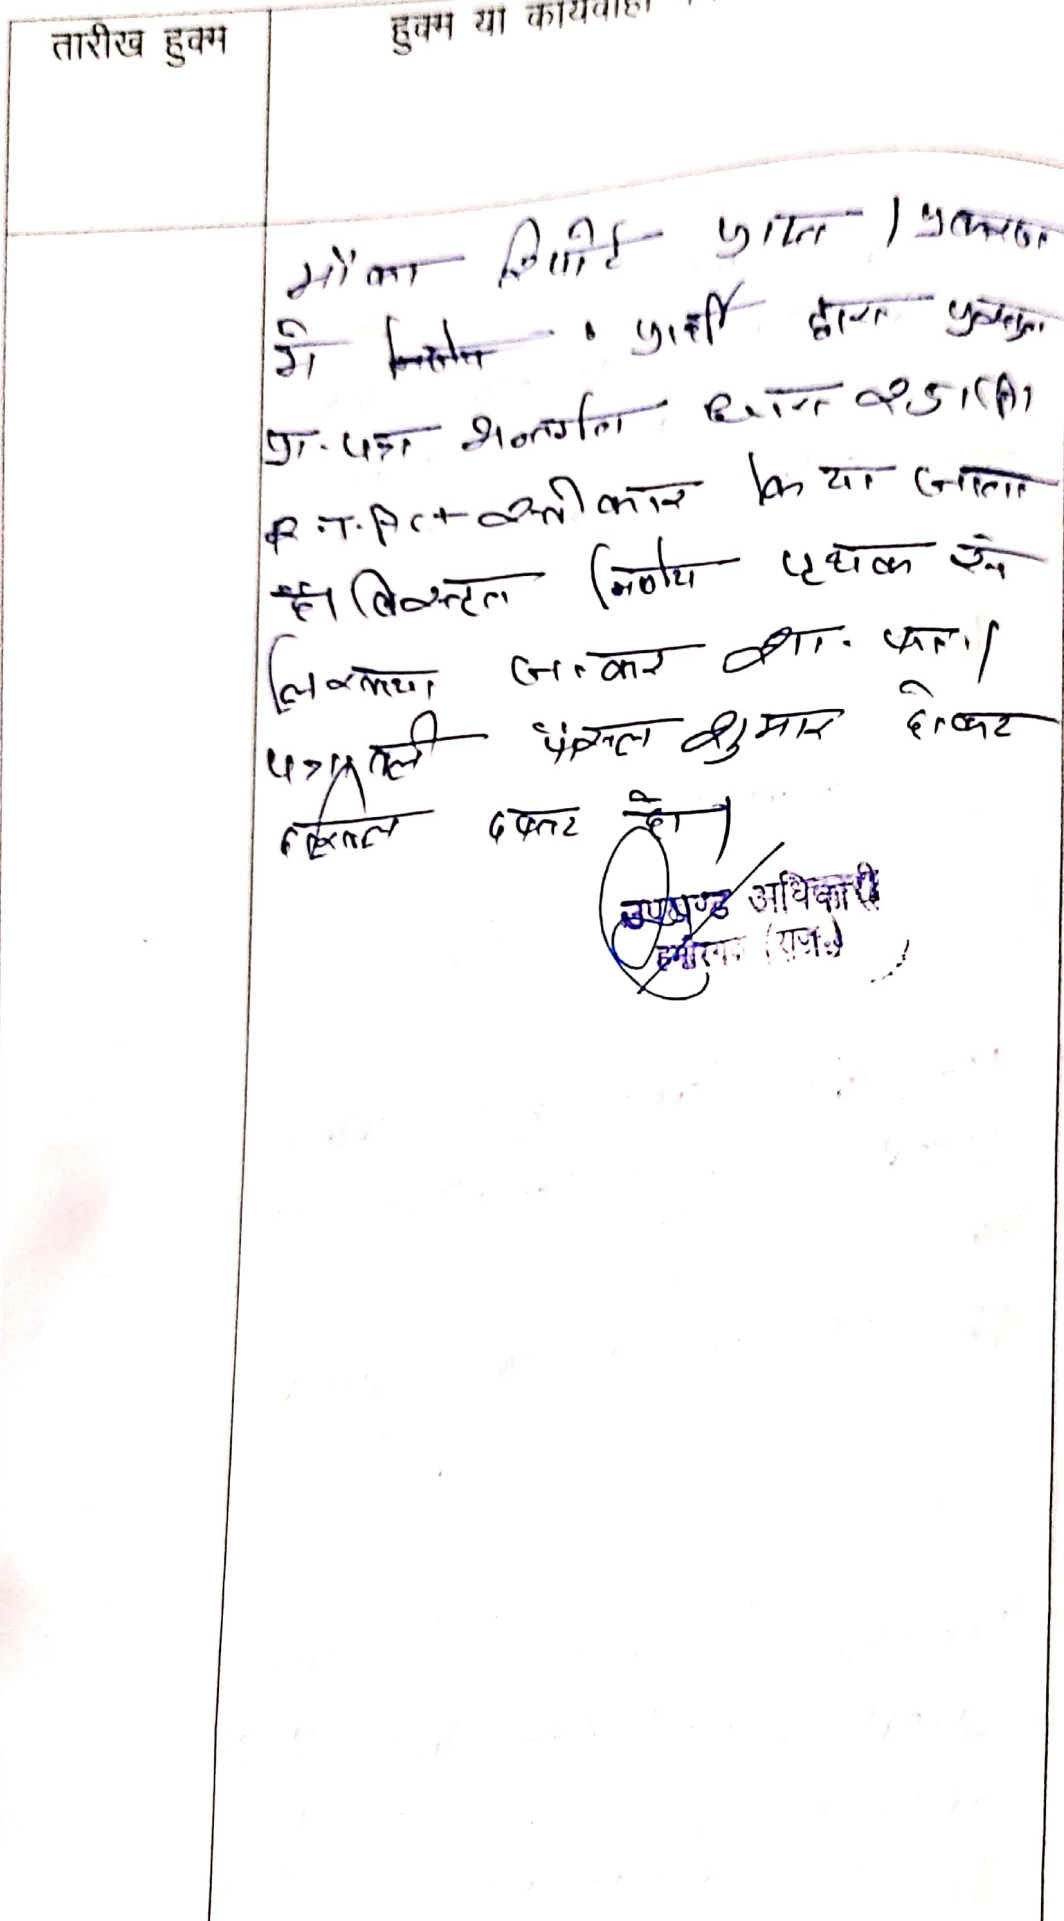 तारीख हुक्म
हुक्म या कार्यवाही
मौका रिपोर्ट प्राप्त । प्रकरण
में प्रार्थी द्वारा प्रस्तुत
प्रा. पत्र अन्तर्गत धारा 251(A)
R.T.Act स्वीकार किया जाता
है। विस्तृत निर्णय पृथक से
लिखाया जाकर शा. फा.।
पत्रावली फैसल शुमार होकर
दाखिल दफ्तर हो।
उपखण्ड अधिकारी
हमीरगढ (राज.)